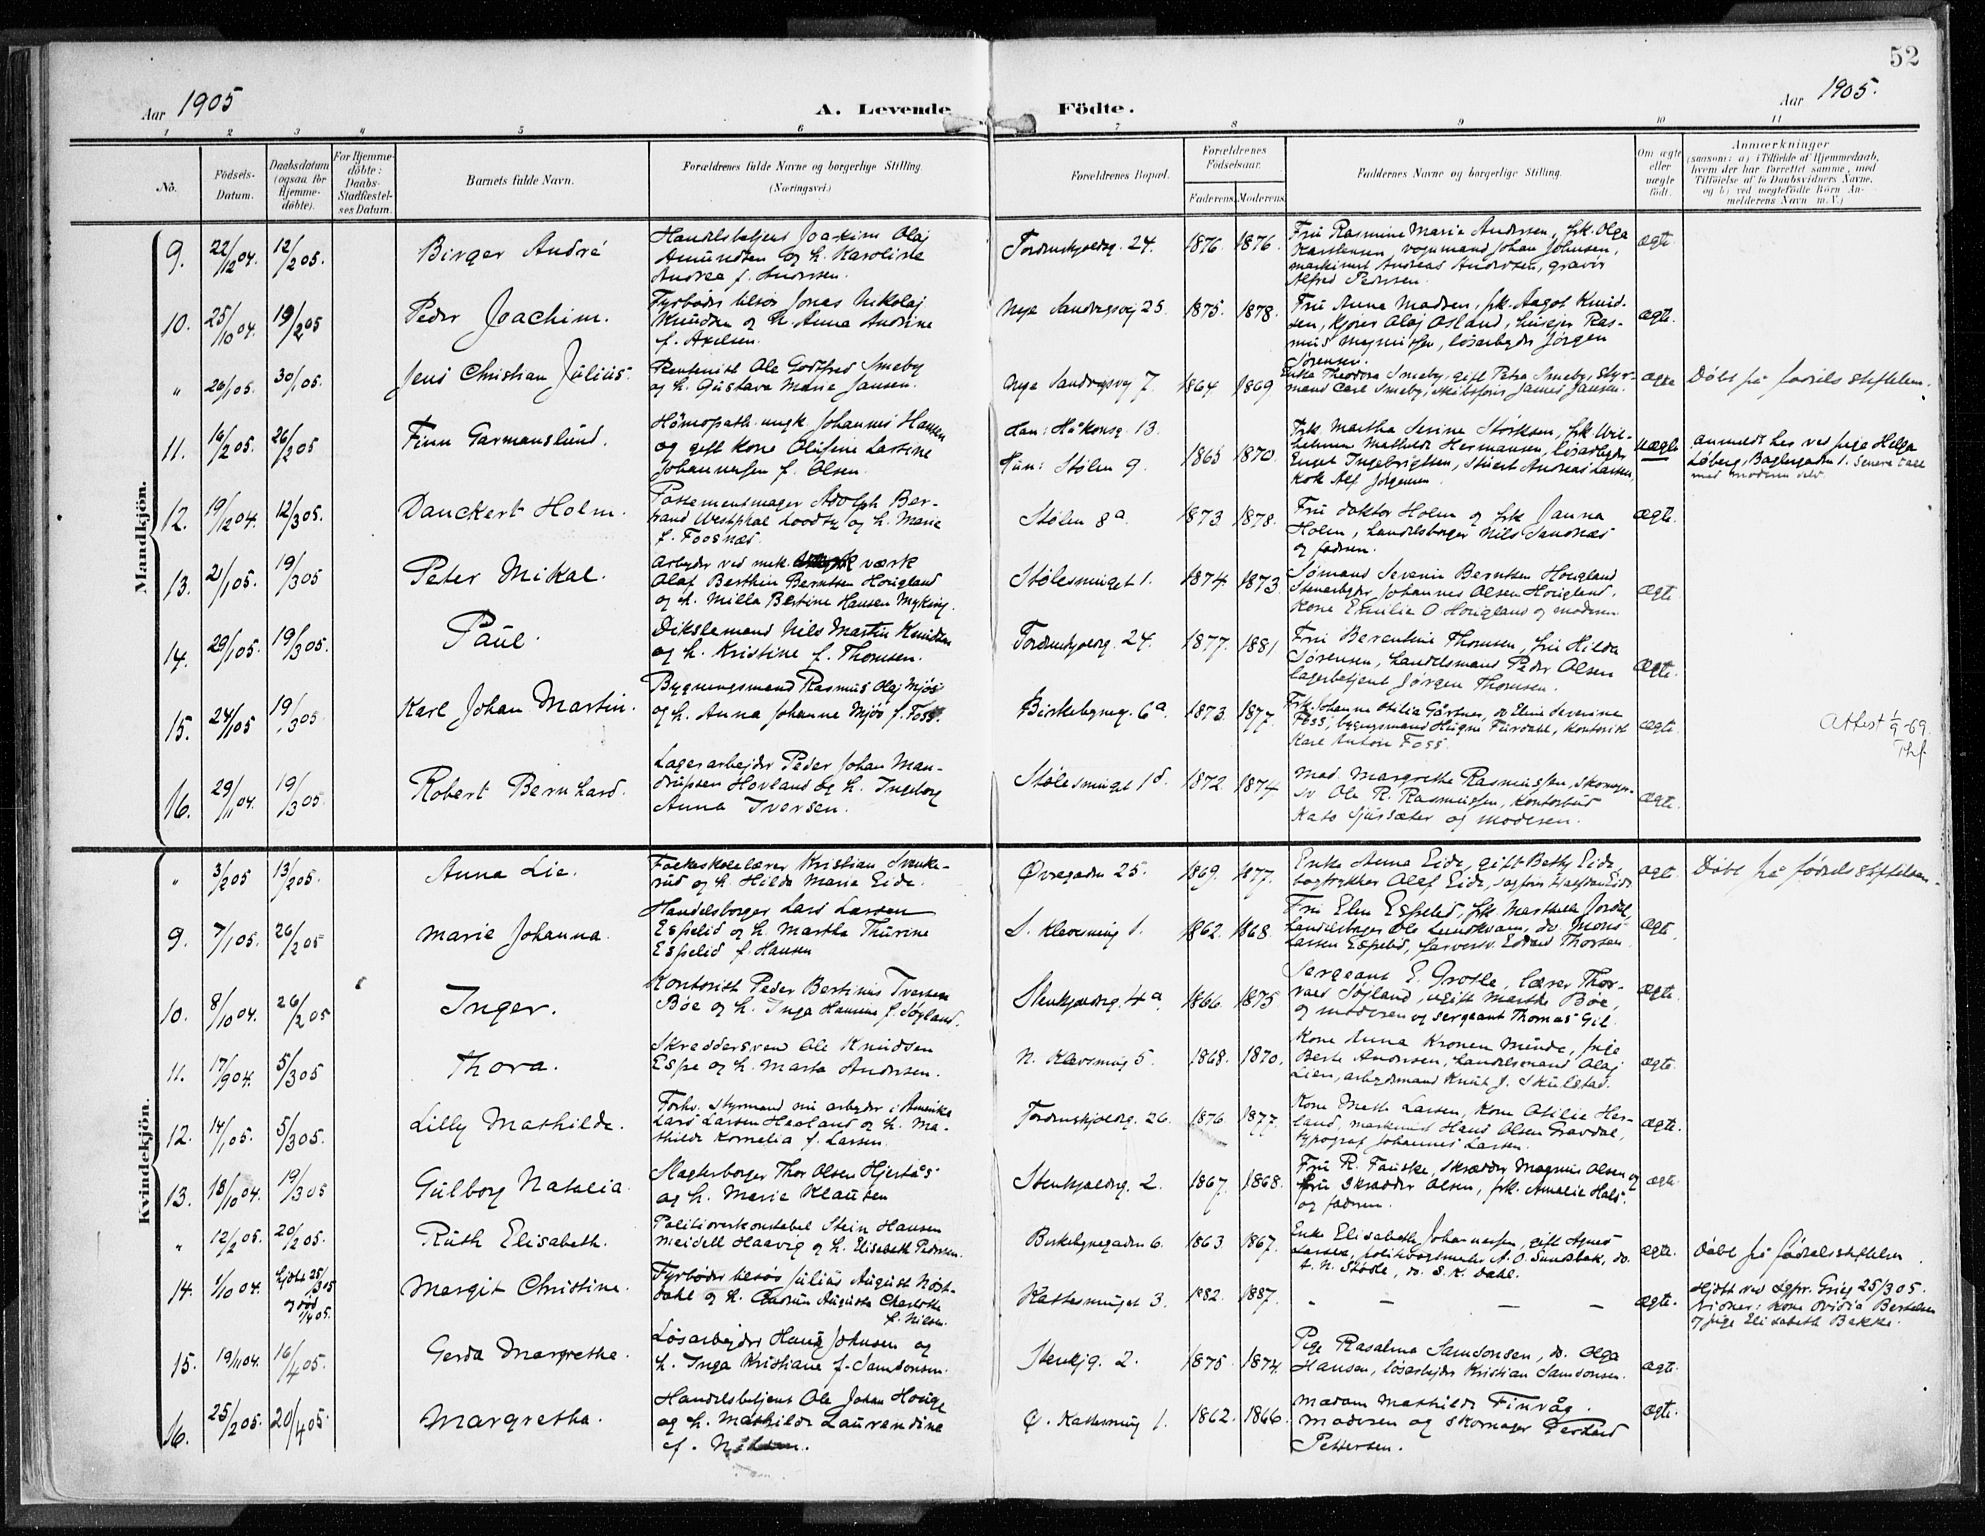 52
Aar 1905
A. Levende Födte.
Aar 1905.
1 2 3 4 5 6 7 8 9 10 11
No.
Födsels-Datum.
Daabsdatum (ogsaa for Hjemmedöbte).
For Hjemmedöbte: Daabs-Stadfæstelses Datum.
Barnets fulde Navn.
Forældrenes fulde Navne og borgerlige Stilling. (Næringsvei.)
Forældrenes Bopæl.
Forældrenes Födselsaar.
Faderens. Moderens.
Faddernes Navne og borgerlige Stilling.
Om ægte eller uægte födt.
Anmærkninger
(saasom: a) i Tilfælde af Hjemmedaab, hvem der har forrettet samme, med Tilföielse af to Daabsvidners Navne, og b) ved uægtefödte Börn Anmelderens Navn m. V.)
Mandkjön.
9. 22/12 04. 12/2 05. Birger André
Handelsbetjent Joakim Olaj
Amundsen og h. Karoline
Andrea f. Andersen.
Tordenskjoldsg. 24. 1876. 1876.
Fru Rasmine Marie Andersen, frk. Olga
Karstensen, vognmand Johan Johnsen,
maskinist Andreas Andersen, gravør
Alfred Pedersen.
ægte
10. 25/10 04. 19/2 05 Peder Joachim.
Fyrbøder tilsøs Jonas Nikolaj
Knudsen og h. Anna Andrine
f. Axelsen.
Nye Sandvigsvej 25. 1875. 1878.
Fru Anna Madsen, frk. Aagot Knud-
sen, kjører Olaj Osland, husejer Ras-
mus Magnussen, løsarbejder Jørgen
Sørensen.
ægte.
" 26/1 05. 30/1 05. Jens Christian Julius.
Rentenist Ole Godtfred Smeby
og h. Gustava Marie Jansen.
Nye Sandvigsvej 7. 1864 1869
Enke Theodora Smeby, gift Petra Smeby, Styr-
mand Carl Smeby, skibsfører James Jansen.
ægte
Døbt på fødselsstiftelsen.
11. 16/2 05. 26/2 05 Finn Garmanslund.
Homøopath ungk. Johannes Hansen
og gift kone Olufine Lassine
Johannessen f. Olsen.
Han: Håkonsg. 13.
Hun: Stølen 9. 1865 1870.
Frk. Martha Serine Størksen, frk. Wil-
helmine Mathilde Hermansen, løsarbejder
Engel Ingebrigtsen, Stuert Andreas Larsen,
kok Alf Jørgensen.
uægte
anmeldt her ved pige Helga
Løberg, Baglergaden 1. Senere talt
med moderen selv.
12. 19/12 04. 12/3 05. Danckert Holm.
Possementmager Adolph Ber-
trand Westphal Loodtz og h. Marie
f. Foosnæs.
Stølen 8a. 1873 1878.
Fru doktor Holm og frk Janna
Holm, handelsborger Nils Sandnæs
og faderen.
ægte.
13. 21/1 05. 19/3 05 Peter Mikal.
Arbejder ved mek. værk
Olaf Berthin Berntsen Hougland
og h. Milla Bertine Hansen Myking.
Stølesmuget 1. 1874. 1873.
Sømand Severin Berntsen Hougland
Stenarbejder Johannes Olsen Hougland,
Kone Emilie O. Hougland og moderen
ægte.
14. 29/1 05. 19/3 05. Paul.
Dikslemand Nils Martin Knudsen
og h. Kristine f. Thomsen.
Tordenskjoldsg. 24. 1877. 1881
Fru Berentine Thomsen, fru Hilda
Sørensen, handelsmand Peder Olsen
lagerbetjent Jørgen Thomsen.
ægte.
15. 24/1 05 19/3 05. Karl Johan Martin.
Bygningsmand Rasmus Olaj Mjøs
og h. Anna Johanne Mjøs f. Foss.
Birkebeyneg. 6a. 1873. 1877.
Frk. Johanne Otilia Gärtner, do Eline Severine
Foss, bygningsmand Hugne Furdahl, kontorist
Karl Anton Foss.
ægte.
Attest 1/9-69.
Thf
16. 29/11 04. 19/3 05. Robert Bernhard.
Lagerarbejder Peder Johan Man-
drupsen Hovland og h. Ingeborg
Anna Iversen.
Stølesmuget 1d. 1872 1874
Mad. Margrethe Rasmussen, skomager-
sv Ole R. Rasmussen, kontorbud
Kato Sjursæter og moderen.
ægte.
Kvindekjön.
" 3/2 05 13/2 05. Anna Lie.
Folkeskolelærer Kristian Svenke-
rud og h. Hilda Marie Eide.
Øvregaden 25. 1869. 1877.
Enke Anna Eide, gift Betty Eide,
bogtrykker Olaf Eide, sagfører Halfdan Eide
ægte.
Døbt på fødselsstiftelsen.
9. 7/1 05. 26/2 05 Marie Johanna.
Handelsborger Lars Larsen
Espelid og h. Martha Thurine
Espelid f. Hansen
S. Kleivesmug 1. 1862. 1868.
Fru Elen Espelid, frk Mathilde Jordal,
handelsborger Ole Lundkvam, do Mons
Larsen Espelid, farversv. Edvard Thorsen
ægte.
10. 8/10 04. 26/2 05 Inger.
Kontorist Peder Bertinus Iversen
Bøe og h. Inga Hanna f. Søgland.
Stenkjældrg. 4a. 1866. 1875
Sergeant E. Grotle, lærer Thor-
vald Søgland, ugift Marthe Bøe,
og moderen og sergeant Thomas Gil.
ægte.
11. 17/9 04. 5/3 05 Thora.
Skræddersvend Ole Knudsen
Espe og h. Marta Andersen.
N. Kleivesmug 5. 1868. 1870.
Kone Anna Kronen Minde, pige
Berte Andersen, handelsmand Olaj
Lien, arbejdsmand Knut J. Skulstad.
ægte.
12. 14/1 05. 5/3 05. Lilly Mathilde.
Forhv. Styrmand nu arbejder i Amerika
Lars Larsen Haaland og h. Ma-
thilde Kornelia f. Larsen.
Tordenskjoldsg. 26. 1876. 1877.
Kone Mette Larsen, Kone Otilie Her-
land, maskinist Hans Olsen Gravdal,
typograf Johannes Larsen
ægte.
13. 18/10 04. 19/3 05 Gulborg Natalia.
Slagterborger Thor Olsen Hjertås
og h. Marie Klausen
Stenkjældrg. 2. 1867. 1868.
Fru R. Fauske, skrædder Magnus Olsen og
fru Skrædder Olsen, frk. Amalie Hals
og faderen.
ægte.
" 12/2 05. 20/2 05. Ruth Elisabeth.
Politioverkonstabel Stein Hansen
Meidell Haavig og h. Elisabeth Pedersen.
Birkebeynegaden 6. 1863 1867.
Enke Elisabeth Johannessen, gift Agnes
Larsen, politivagtmester A. O. Sundbak, do.
A. N. Stødle, do. S. K. Dahl.
ægte.
Døbt på fødselsstiftelsen
14. 1/10 04. hjdbt 25/3 05 og død 4/4 05. Margit Christine.
Fyrbøder tilsøs Julius August Nøst-
dahl og h. Gudrun Augusta Charlotte
f. Nilsen.
Kattesmuget 3. 1882. 1887.
" — — — —
ægte.
Hjdbt ved sgpr. Grieg 25/3 05.
Vidner: Kone Ovidia Bertelsen
og pige Elisabeth Bakke.
15. 19/11 04. 16/4 05. Gerda Margrethe.
Løsarbejder Hans Johnsen og
h. Inga Kristiane f. Samsonsen.
Stenkjg. 2. 1875 1874.
Pige Rasaline Samsonsen, do. Olga
Hansen, løsarbejder Kristian Samsonsen.
ægte.
16. 25/2 05. 20/4 05. Margretha.
Handelsbetjent Ole Johan Houge
og h. Mathilde Laurandine
f. Nilsen.
Ø. Kattesmug 1. 1862. 1866.
Madam Mathilde Finvåg.
Moderen og skomager
Pettersen.
ægte.